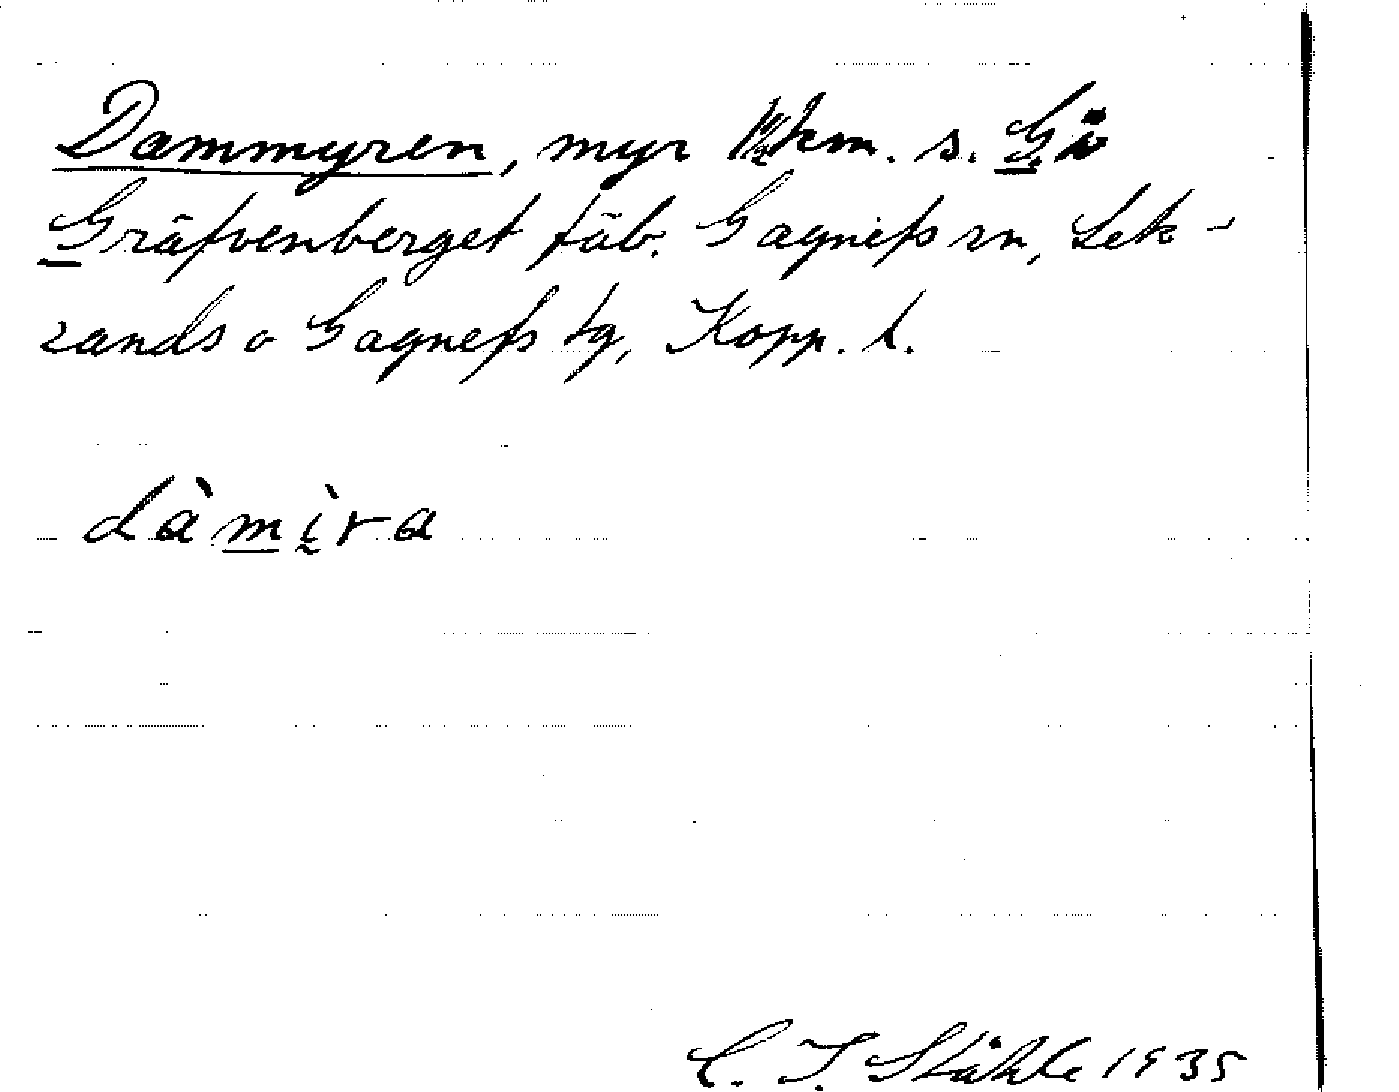 Dammyren, myr 1½ km. s. Gö
Gräfvenberget fäb. Gagnefs sn, Lek-
sands o Gagnefs tg, Kopp. l.
dàmìra
C. I. Ståhle 1935